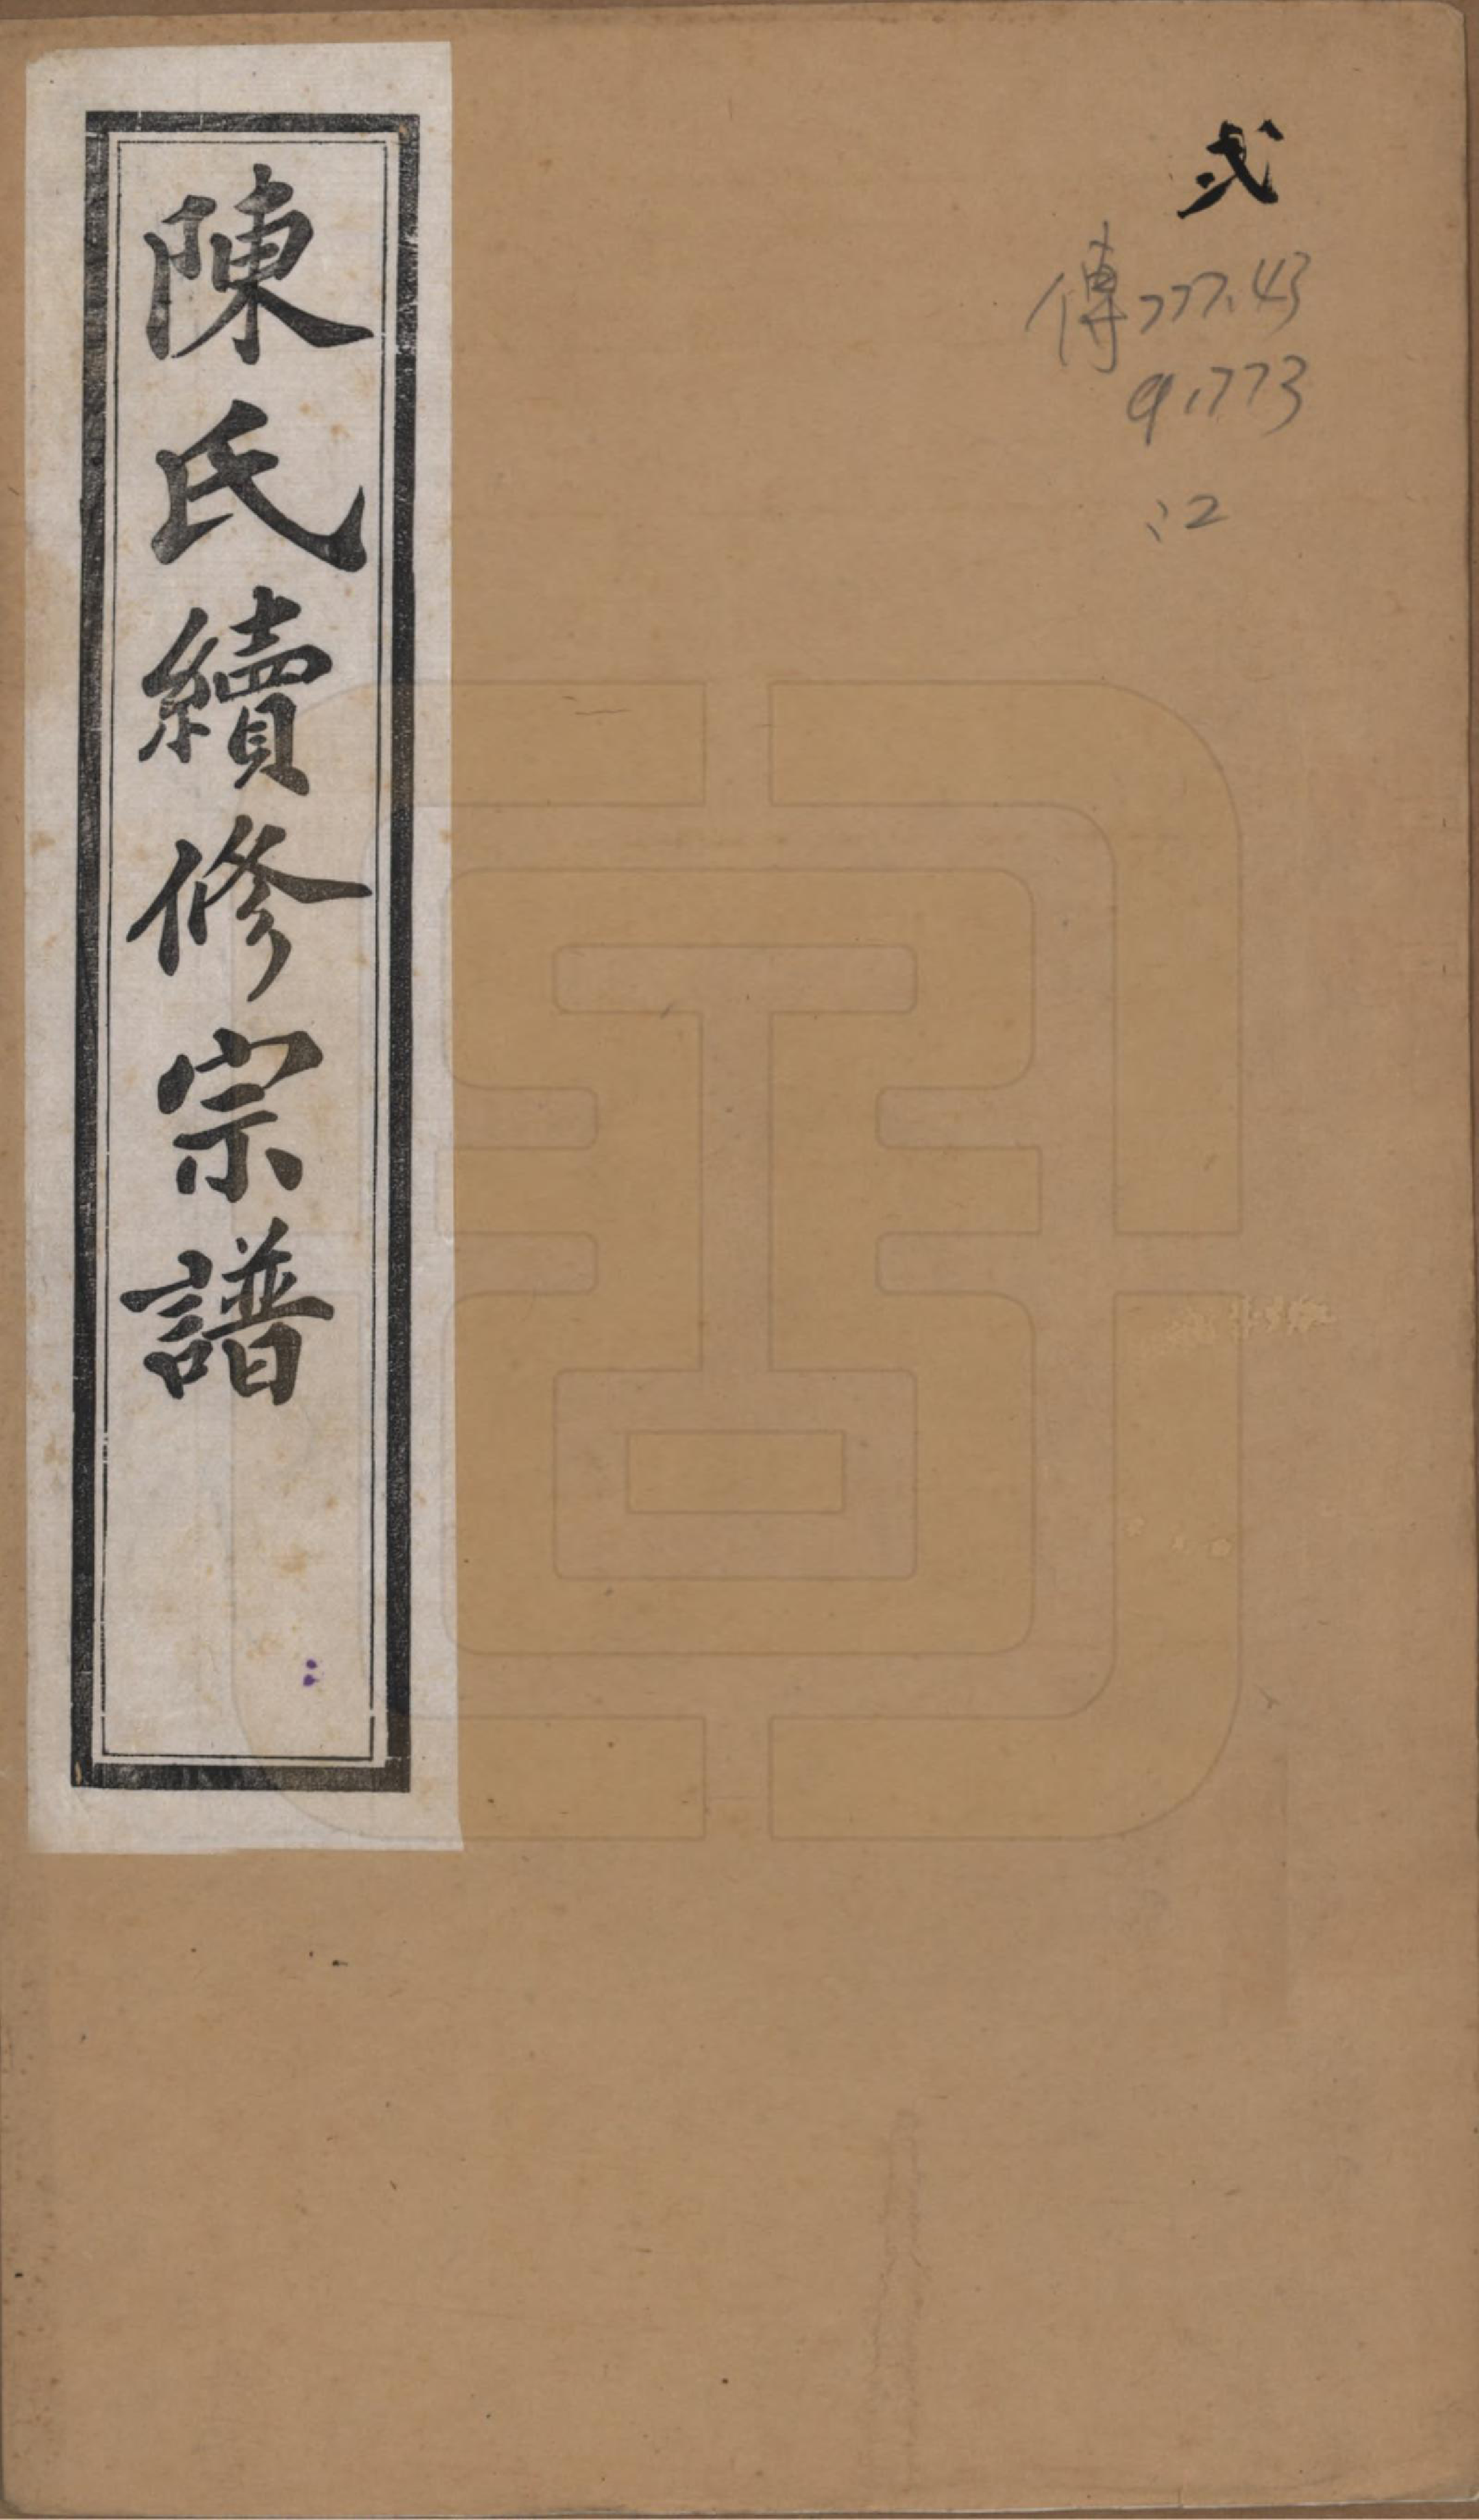 弍
傳777.43
9.773
:2
陳氏續修宗譜